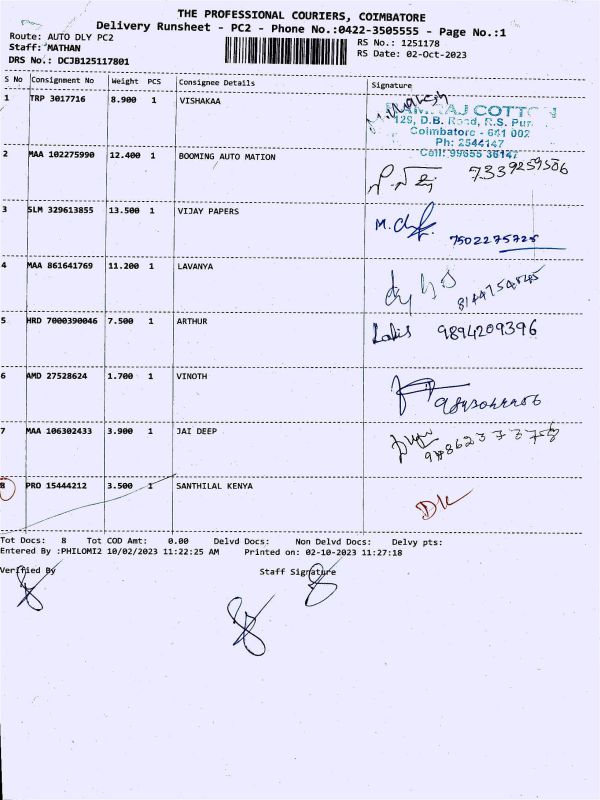 THE PROFESSIONAL COURIERS, COIMBATORE
Delivery Runsheet - PC2 - Phone No.:0422-3505555 - Page No.:1
Route: AUTO DLY PC2
RS No.: 1251178
Staff: MATHAN
RS Date: 02-Oct-2023
DRS No.: DCJB125117801
S No Consignment No Weight PCS Consignee Details Signature
1 TRP 3017716 8.900 1 VISHAKAA
RAMRAJ COTTON
129, D.B. Road, R.S. Pur
Coimbatore - 641 002
Ph: 2544147
Cell: 99655 36147
2 MAA 102275990 12.400 1 BOOMING AUTO MATION
7339259586
3 SLM 329613855 13.500 1 VIJAY PAPERS
7502275728
4 MAA 861641769 11.200 1 LAVANYA
5 HRD 7000390046 7.500 1 ARTHUR
9894209396
6 AMD 27528624 1.700 1 VINOTH
7 MAA 106302433 3.900 1 JAI DEEP
8 PRO 15444212 3.500 1 SANTHILAL KENYA
Tot Docs: 8 Tot COD Amt: 0.00 Delvd Docs: Non Delvd Docs: Delvy pts:
Entered By :PHILOMI2 10/02/2023 11:22:25 AM Printed on: 02-10-2023 11:27:18
Verified By Staff Signature